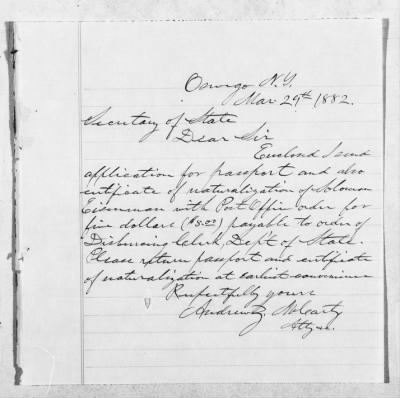 Oswego N.Y.
Mar 29th 1882.
Secretary of State
Dear Sir
Enclosed I send
application for passport and also
certificate of naturalization of Solomon
Eisenman with Post Office order for
five dollars ($5.00) payable to order of
Disbursing Clerk, Dep't of State.
Please return passport and certificate
of naturalization at earliest convenience
Respectfully yours
Andrew Z McCarty
Atty &c.